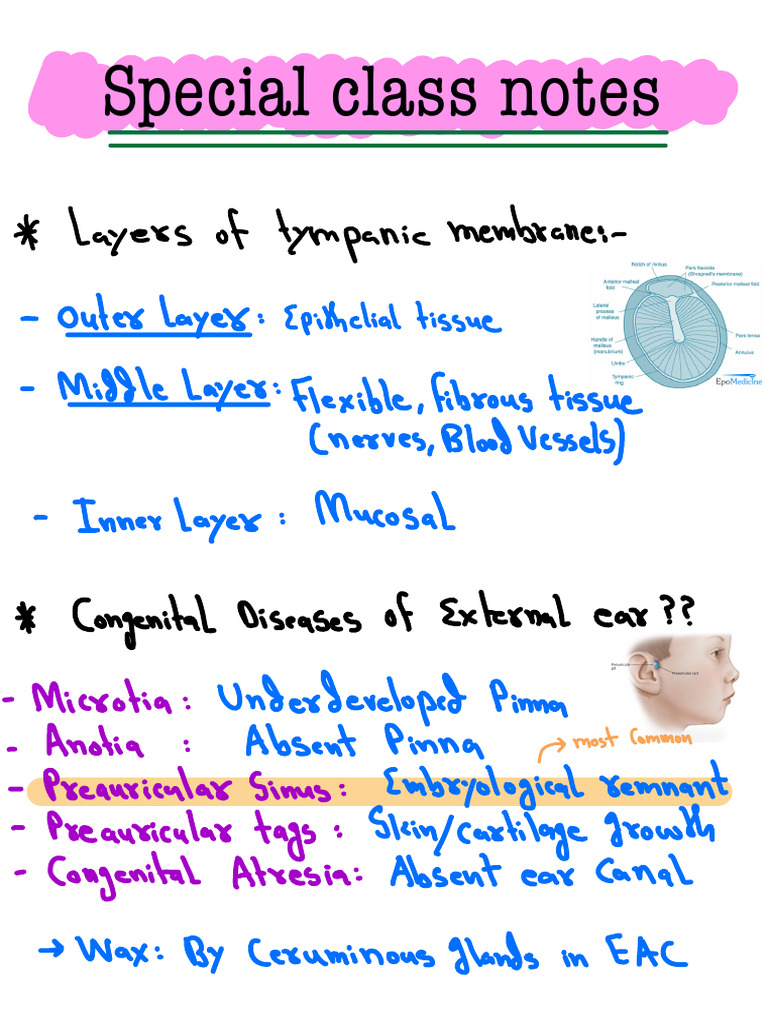 Special class notes
* Layers of tympanic membrane:-
Notch of rivinus
Pars flaccida
(Shrapnell's membrane)
Anterior malleal
fold
Posterior malleal fold
Lateral
process
of malleus
Handle of
malleus
(manubrium)
Pars tensa
Annulus
Umbo
Tympanic
ring
EpoMedicine
- Outer Layer: Epithelial tissue
- Middle Layer: Flexible, fibrous tissue
(nerves, Blood Vessels)
- Inner Layer: Mucosal
* Congenital Diseases of External ear??
Preauricular
pit
Preauricular cyst
- Microtia: Underdeveloped Pinna
- Anotia : Absent Pinna
→ most Common
- Preauricular Sinus: Embryological remnant
- Preauricular tags: Skin/cartilage growth
- Congenital Atresia: Absent ear Canal
→ Wax: By Ceruminous glands in EAC